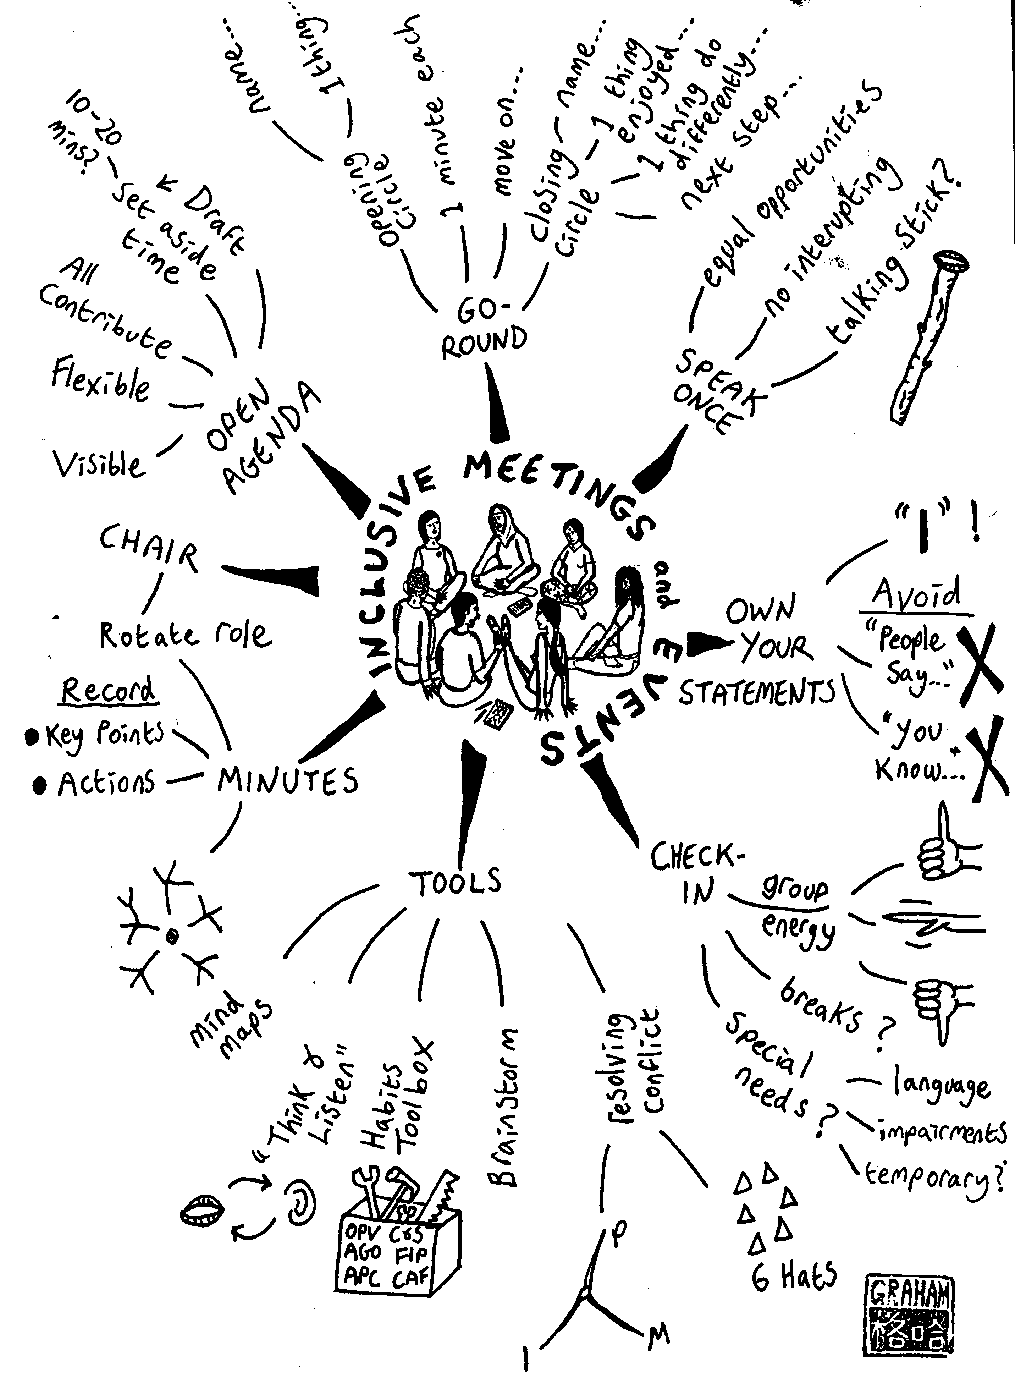 INCLUSIVE MEETINGS and EVENTS
GO-
ROUND
Opening
Circle
name...
1 thing...
1 minute each
move on...
Closing
Circle
name...
1 thing
enjoyed...
1 thing do
differently...
next step...
SPEAK
ONCE
equal opportunities
no interupting
talking stick?
OWN
YOUR
STATEMENTS
"I"!
Avoid
"People
Say..."
"You
Know..."
CHECK-
IN
group
energy
breaks?
special
needs?
language
impairments
temporary?
TOOLS
resolving
conflict
P
M
I
6 Hats
Brainstorm
Habits
Toolbox
OPV C&S
AGO FIP
APC CAF
"Think &
Listen"
Mind
Maps
MINUTES
Record
● Key Points
● Actions
Rotate role
CHAIR
OPEN
AGENDA
Visible
Flexible
All
Contribute
Set aside
time
10-20
mins?
Draft
GRAHAM
格哈